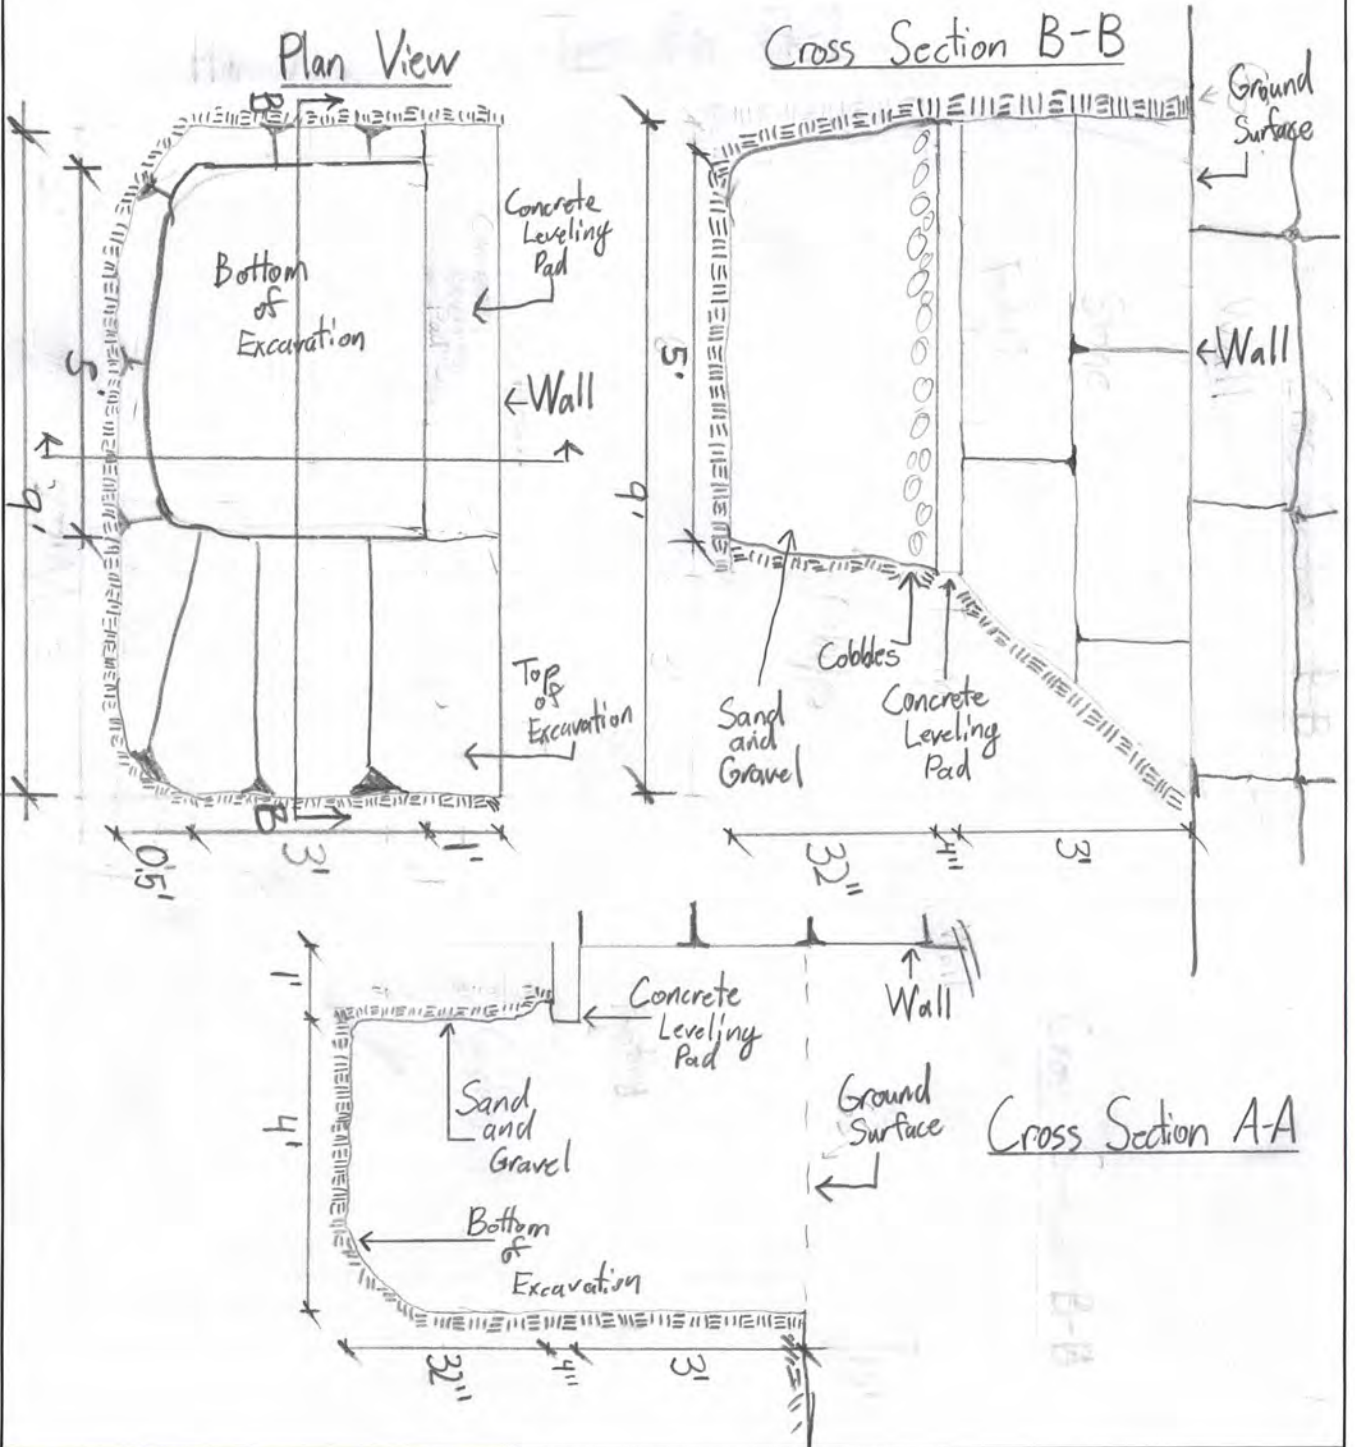 Plan View
B
Concrete
Leveling
Pad
Bottom
of
Excavation
5'
9'
←Wall
Top
of
Excavation
B
0.5'
3'
1'
Cross Section B-B
Ground
Surface
←Wall
5'
9'
Cobbles
Sand
and
Gravel
Concrete
Leveling
Pad
32"
4"
3'
1'
4'
Concrete
Leveling
Pad
Wall
Sand
and
Gravel
Ground
Surface
Cross Section A-A
Bottom
of
Excavation
32"
4"
3'